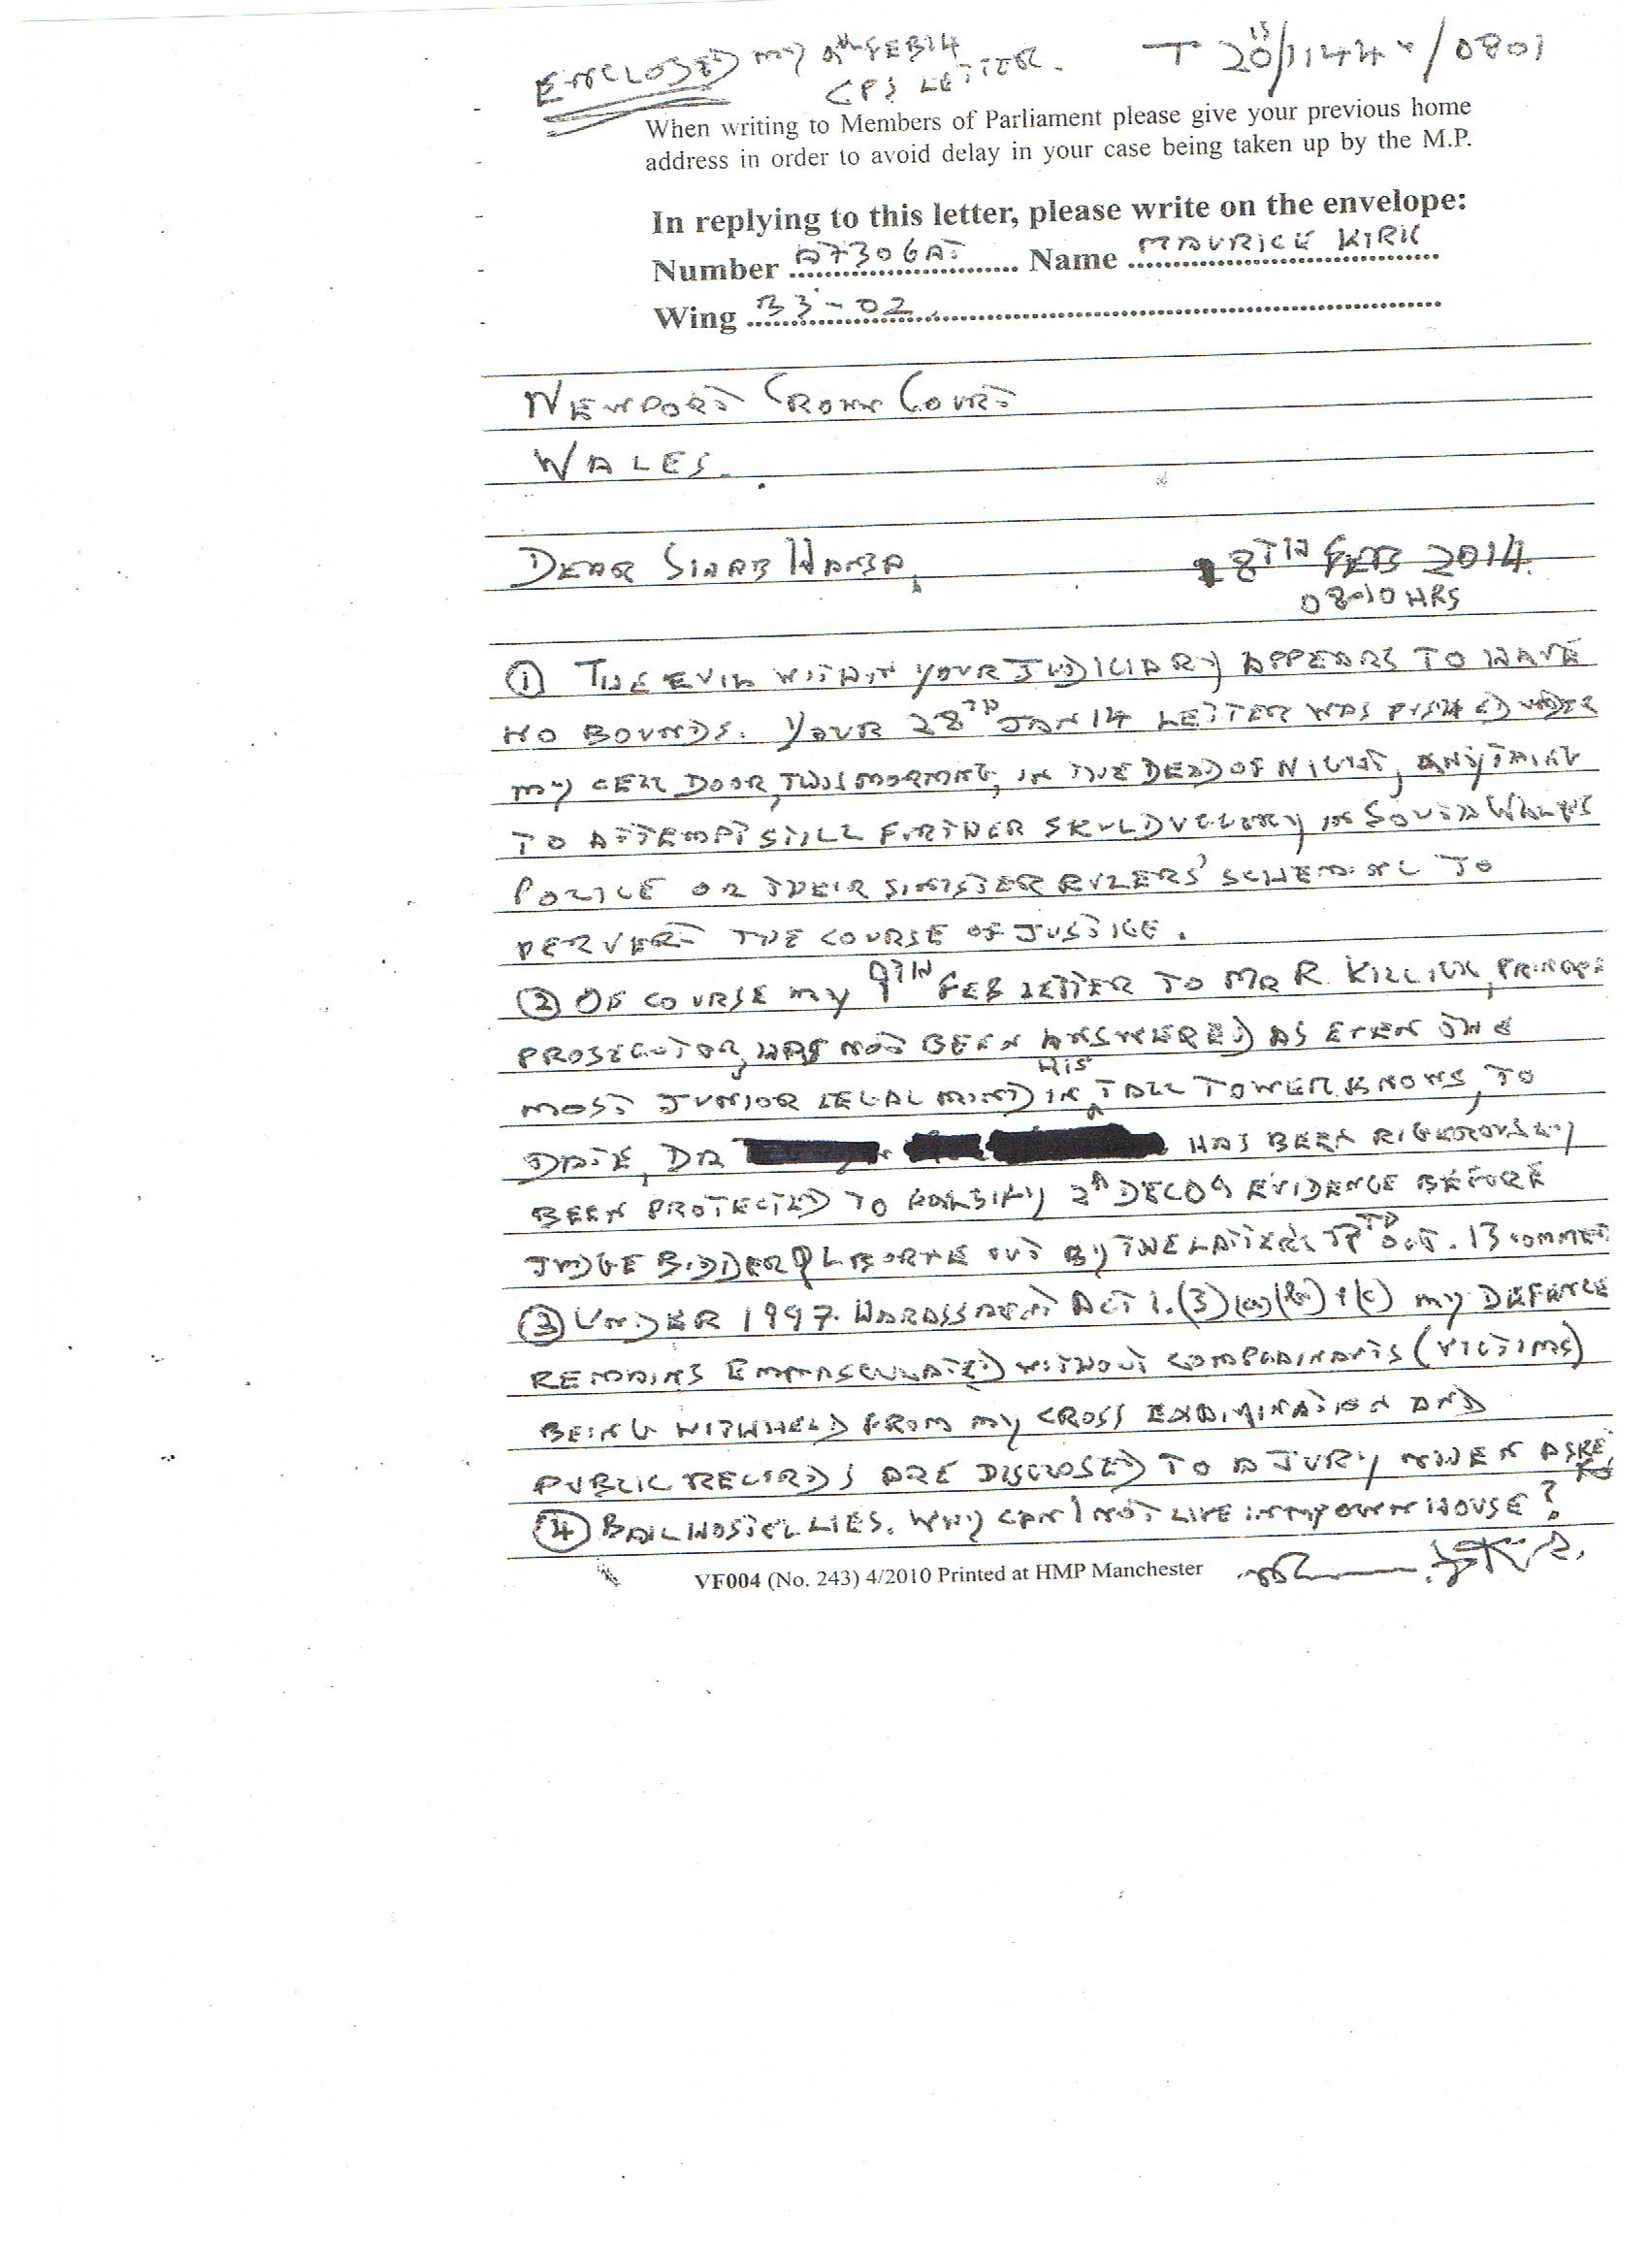 ENCLOSED MY 9TH FEB 14
CPS LETTER.
T 20/1144 /0801
When writing to Members of Parliament please give your previous home
address in order to avoid delay in your case being taken up by the M.P.
In replying to this letter, please write on the envelope:
Number A7306AT Name MAURICE KIRK
Wing B3-02
NEWPORT CROWN COURT
WALES.
DEAR
8TH FEB 2014.
0810 HRS
① THE EVIL WITHIN YOUR JUDICIARY APPEARS TO HAVE
NO BOUNDS. YOUR 28TH JAN 14 LETTER WAS PUSHED UNDER
MY CELL DOOR, THIS MORNING, IN THE DEAD OF NIGHT, ANYTHING
TO ATTEMPT STILL FURTHER SKULDUGGERY IN SOUTH WALES
POLICE OR THEIR SINISTER RULERS' SCHEMING TO
PERVERT THE COURSE OF JUSTICE.
② OF COURSE MY 9TH FEB LETTER TO MR R. KILLICK,
PROSECUTOR, HAS NOT BEEN ANSWERED AS EVEN THE
MOST JUNIOR LEGAL MIND IN HIS TALL TOWER KNOWS, TO
DATE, DR HAS BEEN RIGEROUSLY
BEEN PROTECTED TO FALSIFY 2ND DEC 09 EVIDENCE BEFORE
JUDGE BIDDER QC BORNE OUT BY THE LATTER'S OCT. 13
③ UNDER 1997 HARASSMENT ACT 1.(3)(a)(b) & (c) MY DEFENCE
REMAINS EMMASCULATED WITHOUT COMPLAINANTS (VICTIMS)
BEING WITHHELD FROM MY CROSS EXAMINATION AND
PUBLIC RECORDS ARE DISCLOSED TO A JURY WHEN ASKED
④ BAIL HOSTEL LIES. WHY CAN I NOT LIVE IN MY OWN HOUSE?
VF004 (No. 243) 4/2010 Printed at HMP Manchester